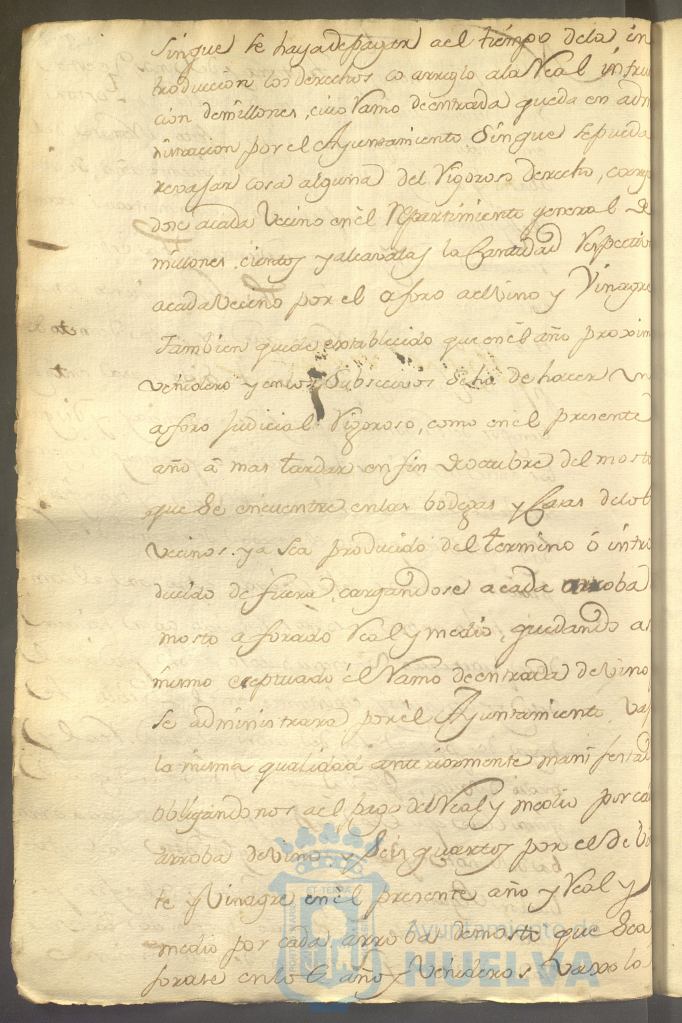 sin que se haya de pagar a el tiempo de la in
troduccion los derechos co arreglo a la Real instruc
cion de millones, cuio Ramo de entrada queda en adm
nistracion por el Ayuntamiento Sin que se pueda
revajar cosa alguna del Rigoroso derecho, carg
dose a cada Vecino en el Repartimiento general de
millones, cientos y alcavalas la Cantidad Respectiva
a cada Vecino por el aforo de Vino y Vinagre
Tambien queda establecido que en el año proxim
venidero y en los Subsecivos Se ha de hacer un
aforo Judicial Rigoroso, como en el presente
año à mas tardar en fin de octubre del mosto
que Se encuentre en las bodegas y Casas de los
vecinos ya sea producido del termino ò intro
ducido de fuera, cargandose a cada arroba
mosto aforado Real y medio, quedando as
mismo exeptuado el Ramo de entrada de vino
se administrara por el Ayuntamiento, vajo
la misma qualidad anteriormente manifestad
obligandonos a el pago del Real y medio por cad
arroba de vino y Seis quartos por el de
te Vinagre en el presente año y Real y
medio por cada arroba de mosto que Sea
forase en los años Venideros vaxo lo
Ayuntamiento de
HUELVA